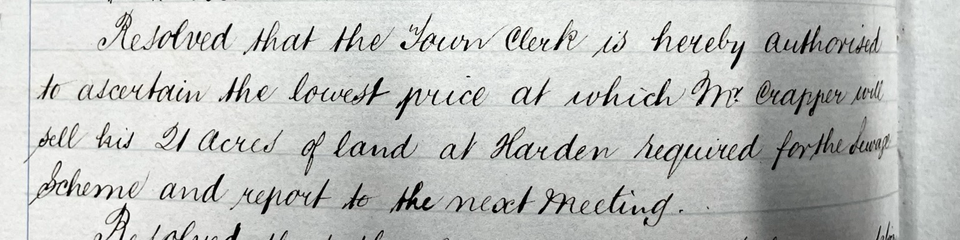 Resolved that the Town Clerk is hereby authorised
to ascertain the lowest price at which Mr. Crapper will
sell his 21 Acres of land at Harden required for the Sewage
Scheme and report to the next Meeting.
Resolved that the